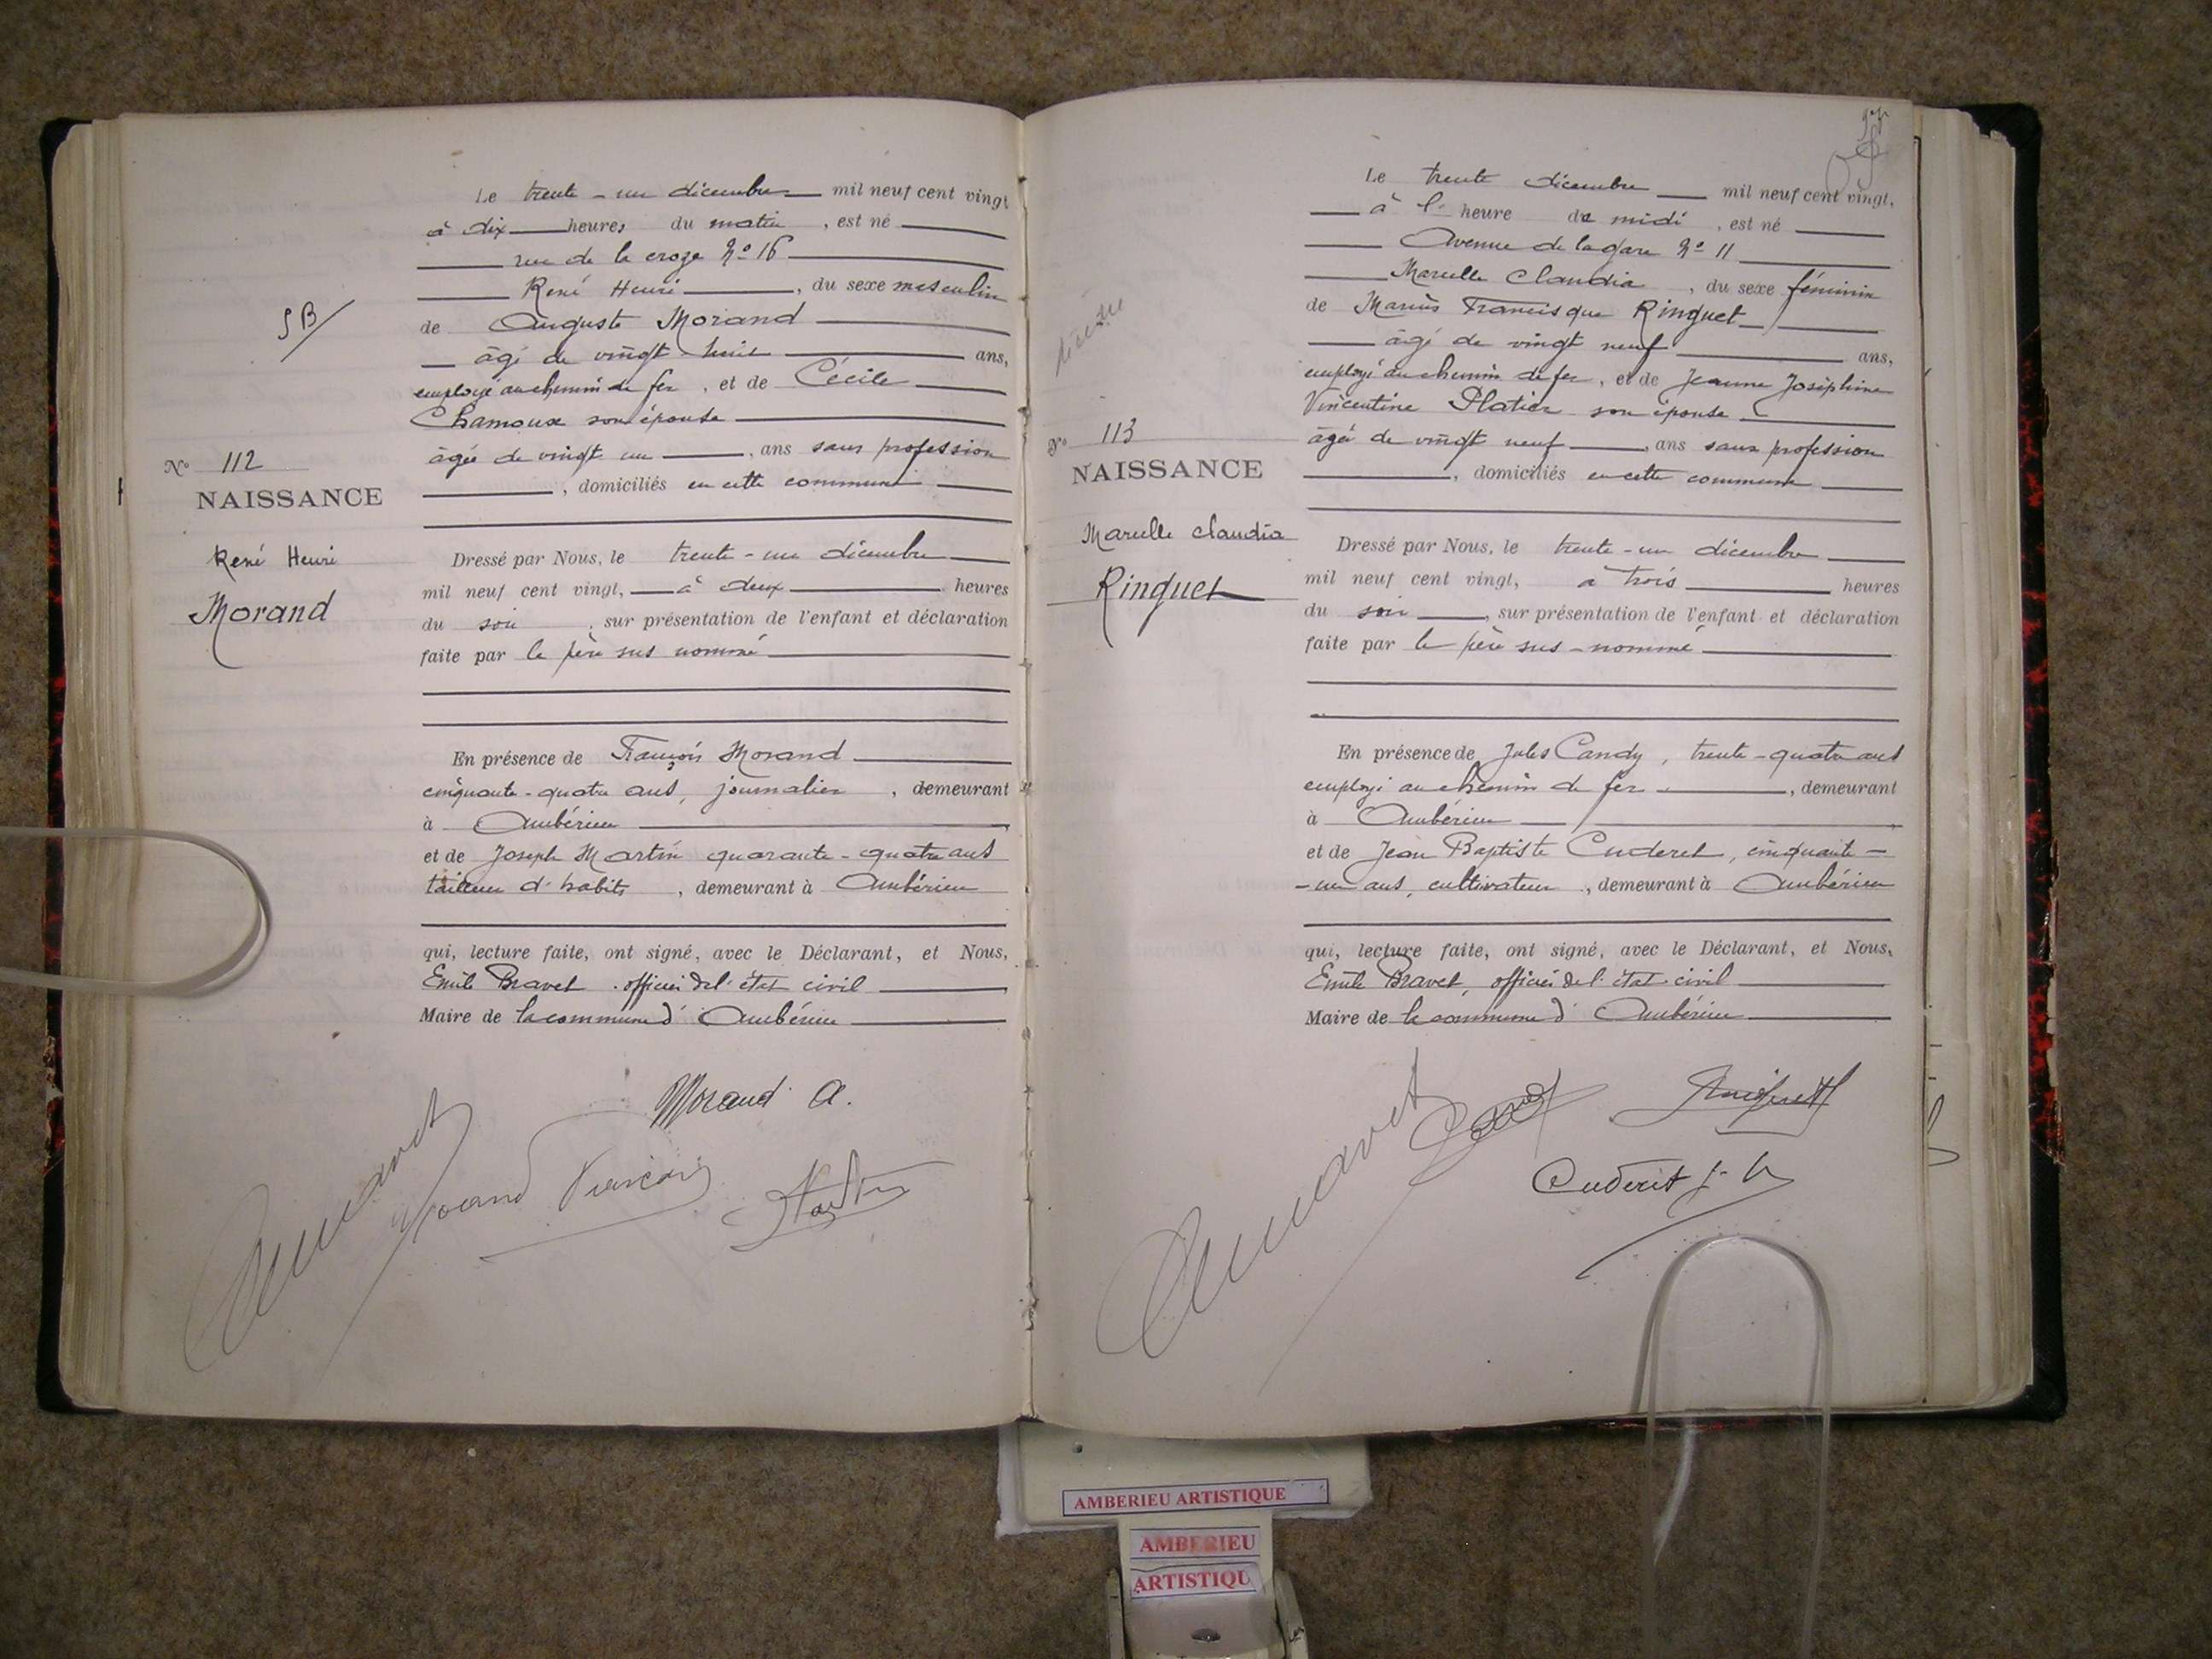 Le trente-un décembre mil neuf cent vingt
à dix heures du matin, est né
rue de la croze N° 16
René Henri, du sexe masculin
de Auguste Morand
âgé de vingt huit ans,
employé au chemin de fer, et de Cécile
Chamoux son épouse
âgée de vingt un, ans sans profession
, domiciliés en cette commune
SB
N° 112
NAISSANCE
René Henri
Morand
Dressé par Nous, le trente-un décembre
mil neuf cent vingt, à deux heures
du soir, sur présentation de l'enfant et déclaration
faite par le père sus nommé
En présence de François Morand
cinquante-quatre ans, journalier, demeurant
à Ambérieu
et de Joseph Martin quarante-quatre ans
tailleur d'habits, demeurant à Ambérieu
qui, lecture faite, ont signé, avec le Déclarant, et Nous,
Emile Bravet, officier de l'état civil
Maire de la commune d'Ambérieu
Morand A.
Morand François
Martin
Le trente décembre mil neuf cent vingt,
à l' heure de midi, est né
Avenue de la gare N° 11
Marcelle Claudia, du sexe féminin
de Marius Francisque Ringuet
âgé de vingt neuf ans,
employé au chemin de fer, et de Jeanne Joséphine
Vincentine Platier son épouse
âgée de vingt neuf, ans sans profession
, domiciliés en cette commune
N° 113
NAISSANCE
Marcelle Claudia
Ringuet
Dressé par Nous, le trente-un décembre
mil neuf cent vingt, à trois heures
du soir, sur présentation de l'enfant et déclaration
faite par le père sus-nommé
En présence de Jules Candy, trente-quatre ans
employé au chemin de fer, demeurant
à Ambérieu
et de Jean Baptiste Cuderet, cinquante-
-un ans, cultivateur, demeurant à Ambérieu
qui, lecture faite, ont signé, avec le Déclarant, et Nous,
Emile Bravet, officier de l'état civil
Maire de la commune d'Ambérieu
Cuderet J. B
AMBERIEU ARTISTIQUE
AMBERIEU
ARTISTIQU